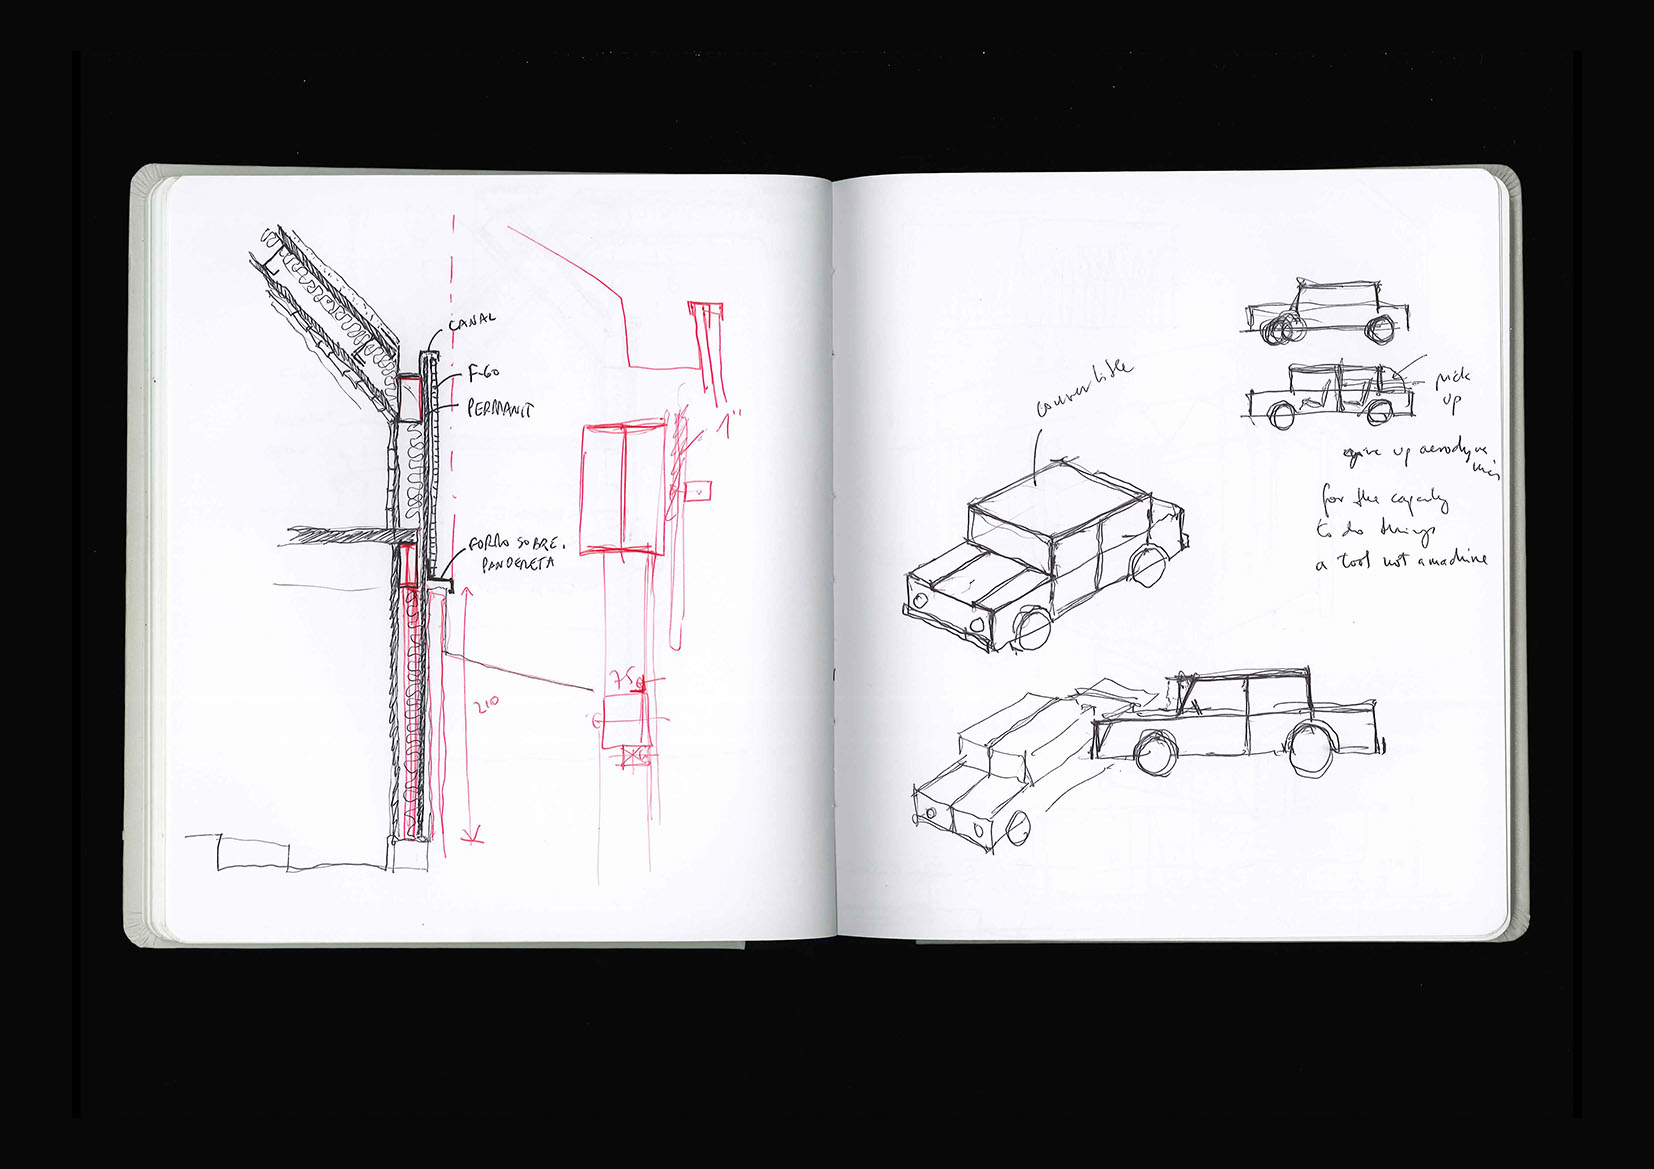 CANAL
F-60
PERMANIT
FORRO SOBRE.
PANDERETA
210
1"
75
convertible
pick
up
give up aerodyna
mics
for the capacity
to do things
a tool not a machine